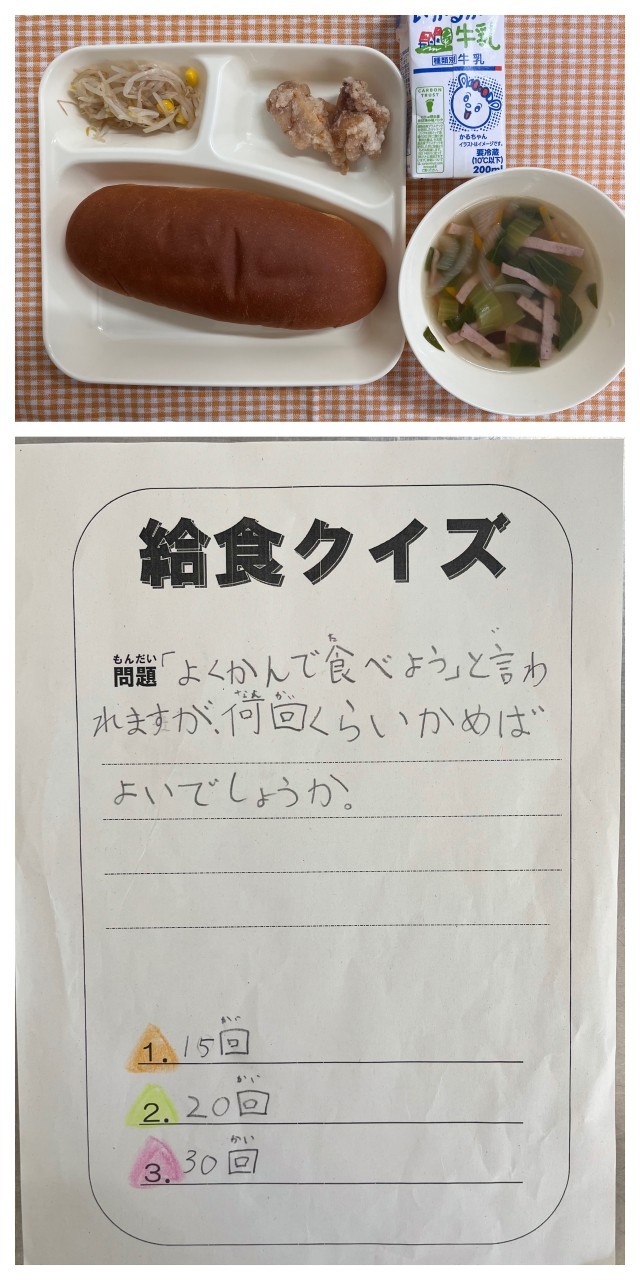 牛乳
種類別 牛乳
CARBON
TRUST
かるちゃん
イラストはイメージです。
要冷蔵
(10℃以下)
200ml
給食クイズ
もんだい た い
問題「よくかんで食べよう」と言わ
なん かい
れますが、何回くらいかめば
よいでしょうか。
かい
1. 15回
かい
2. 20回
かい
3. 30回